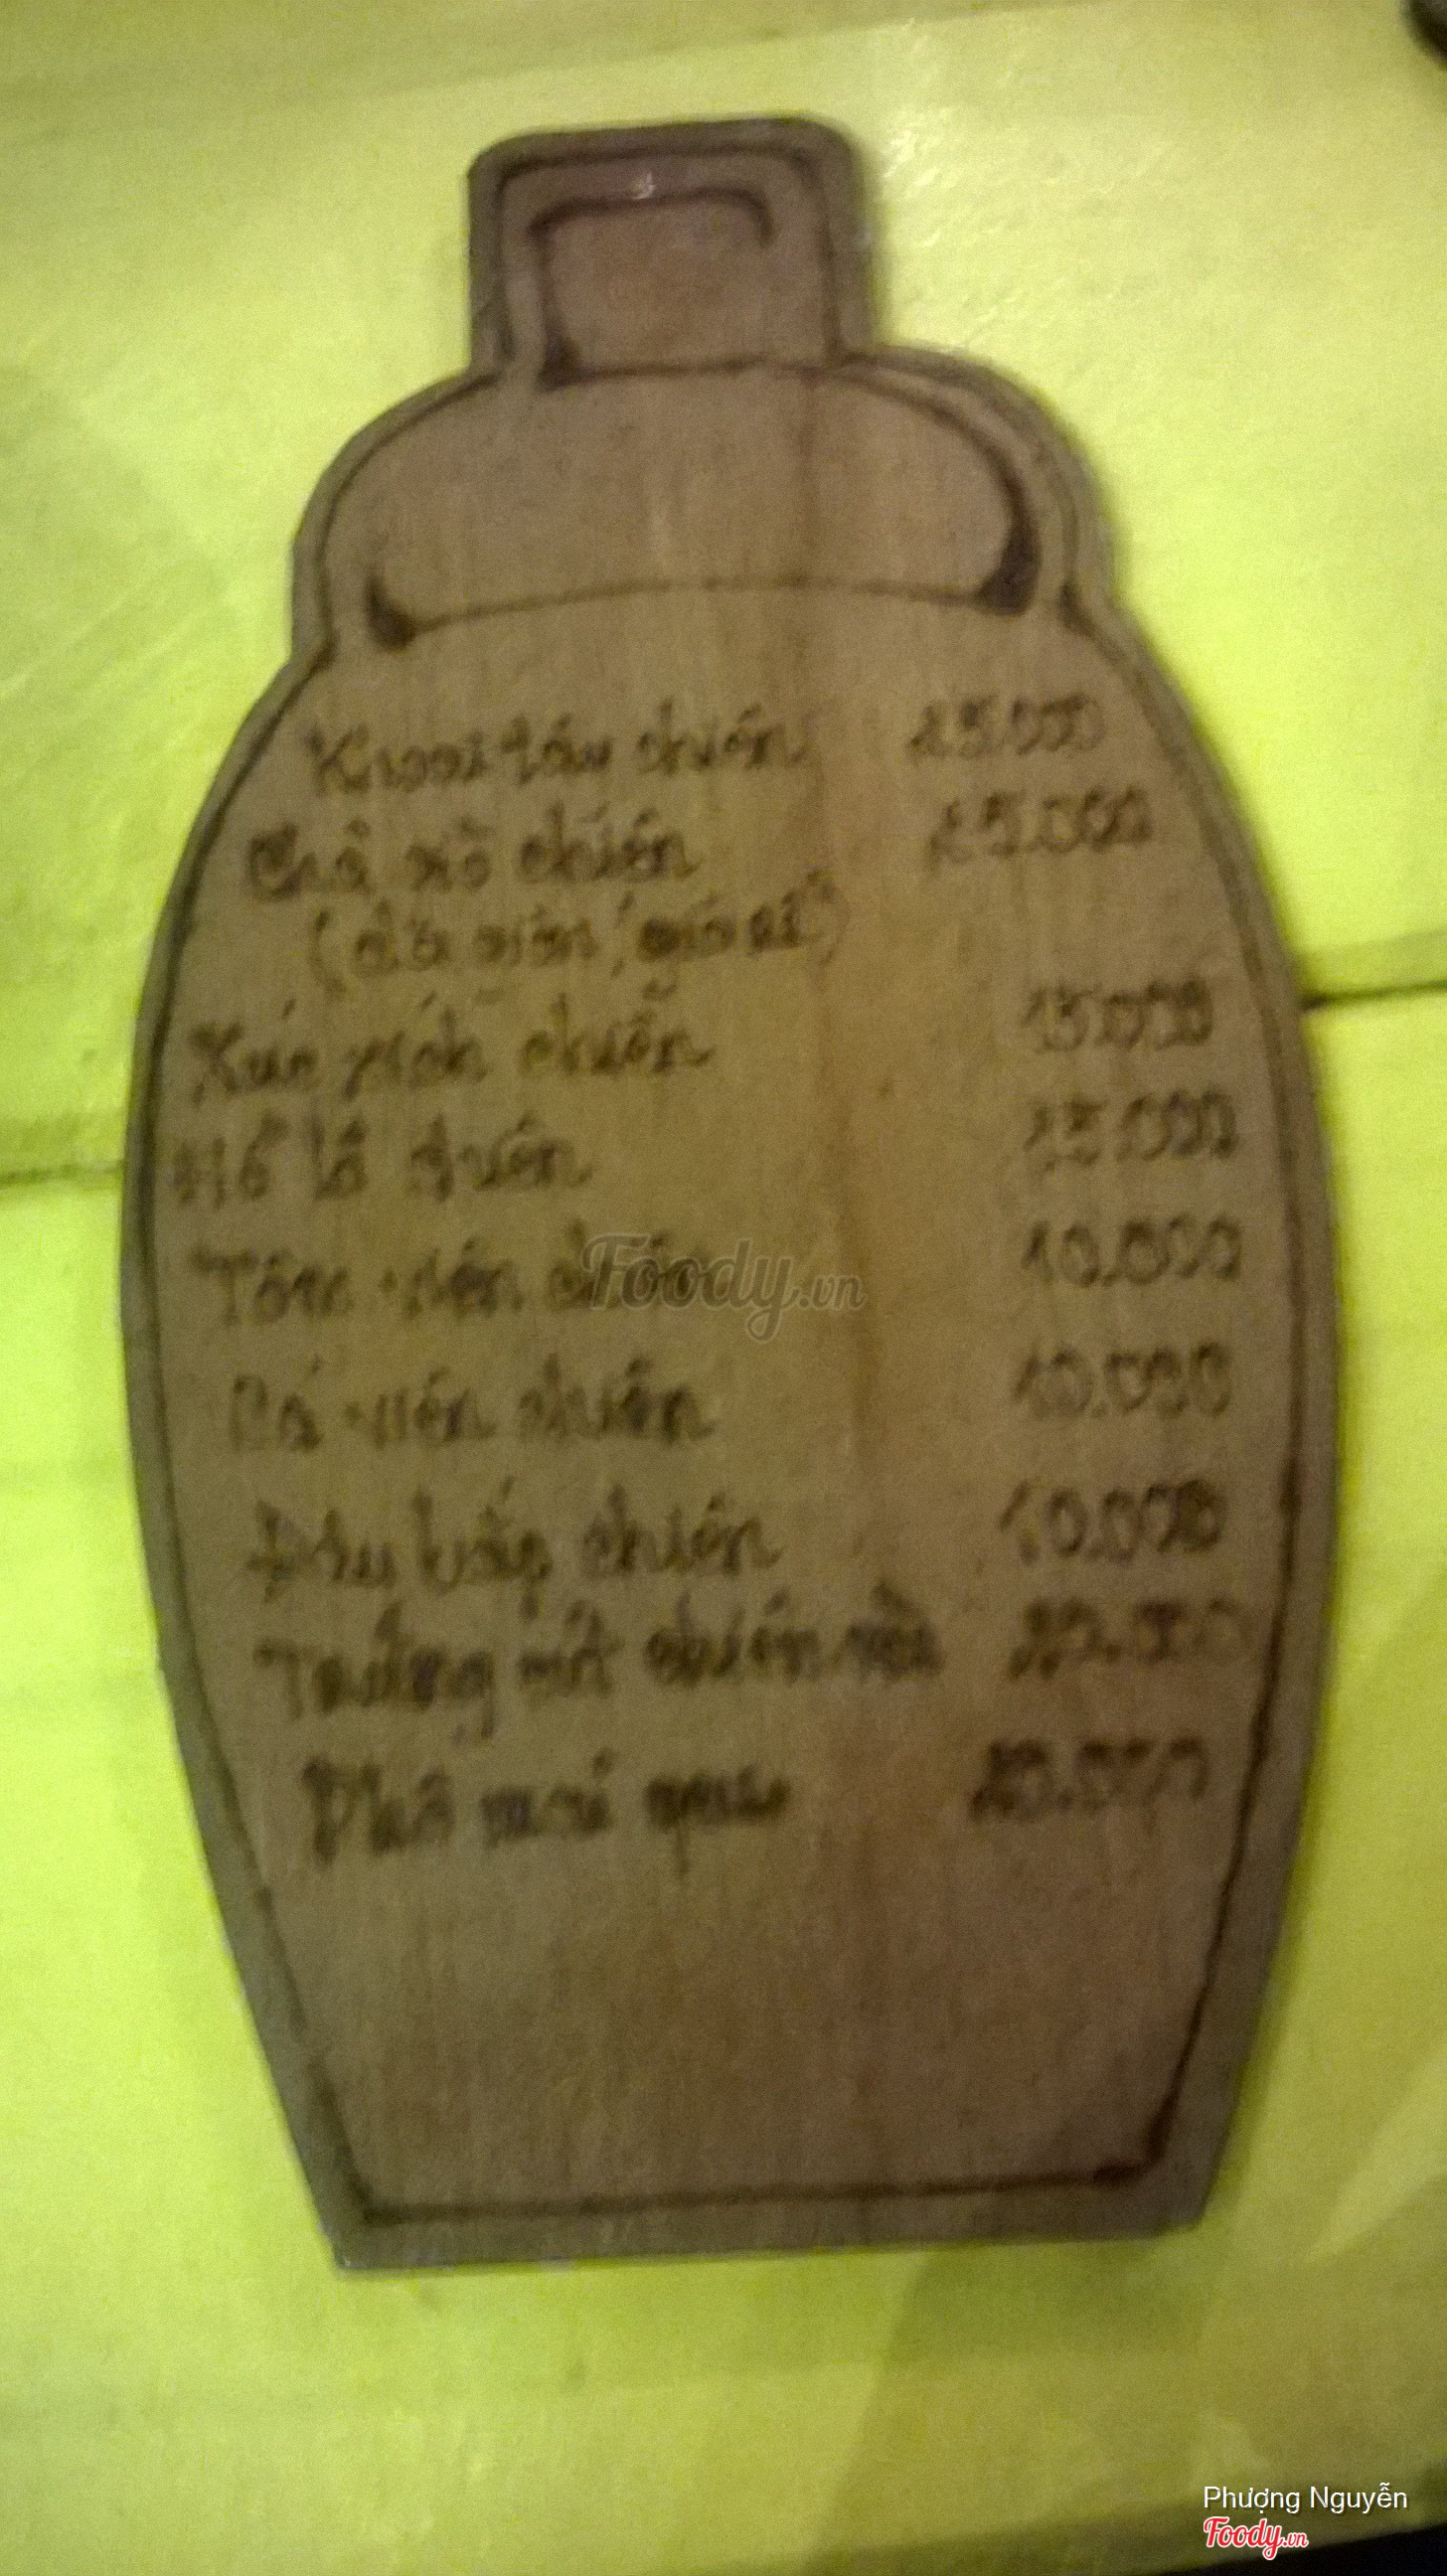 Khoai tây chiên 15.000
Chả giò chiên 15.000
(
Xúc xích chiên 15.000
Hồ lô chiên 15.000
Tôm viên chiên 10.000
Cá viên chiên 10.000
Đậu bắp chiên 10.000
Trứng cút chiên
Phô mai que 20.000
Foody.vn
Phượng Nguyễn
Foody.vn